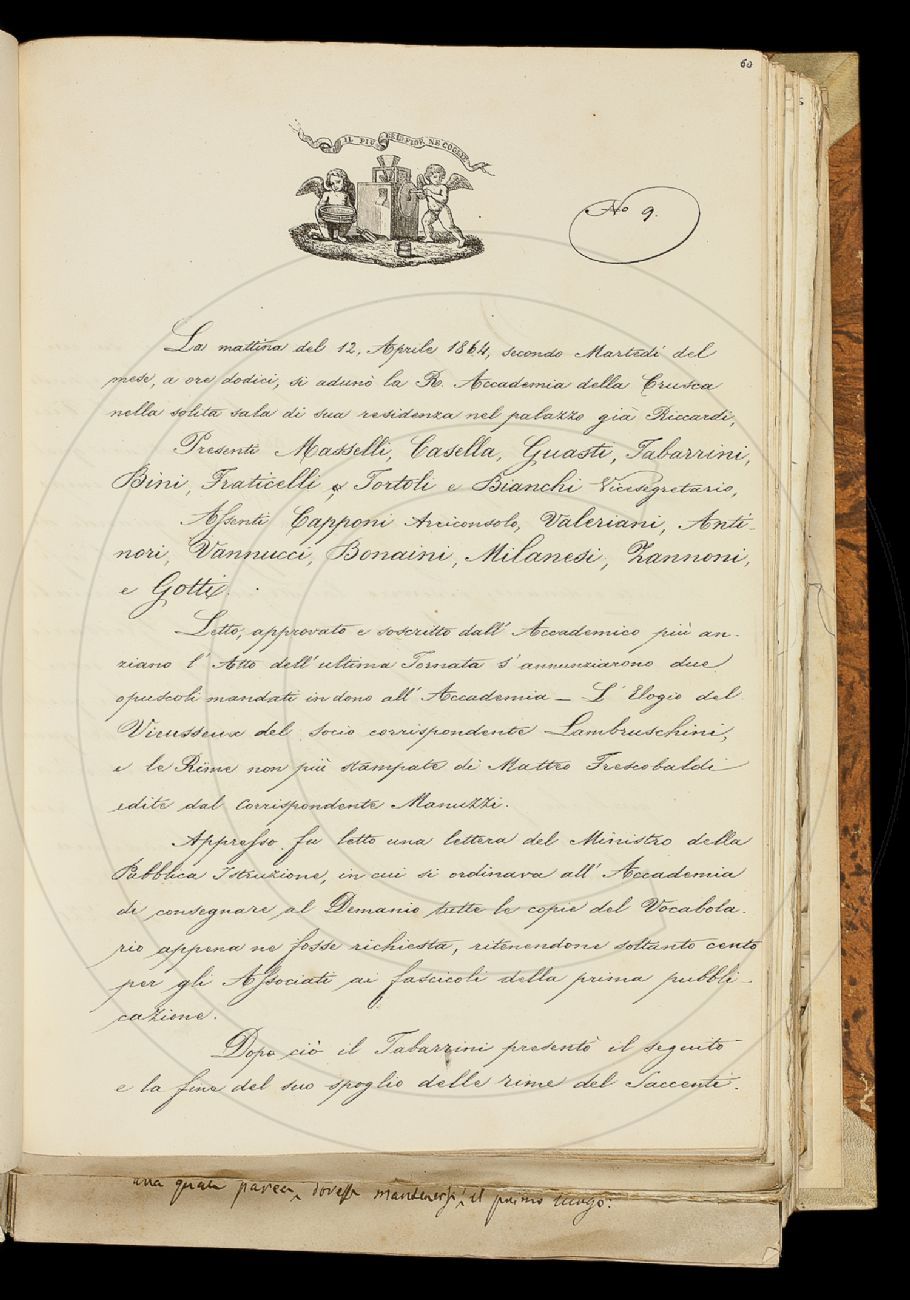 60
IL PIÙ BEL FIOR NE COGLIE
No 9.
La mattina del 12, Aprile 1864, secondo Martedì del
mese, a ore dodici, si adunò la R. Accademia della Crusca
nella solita sala di sua residenza nel palazzo già Riccardi,
Presenti Masselli, Casella, Guasti, Tabarrini,
Bini, Fraticelli, e Tortoli e Bianchi Vicesegretario,
Assenti Capponi Arciconsolo, Valeriani, Anti-
nori, Vannucci, Bonaini, Milanesi, Zannoni,
e Gotti.
Letto, approvato e soscritto dall' Accademico più an-
ziano l' Atto dell' ultima Tornata s' annunziarono due
opuscoli mandati in dono all' Accademia — L' Elogio del
Viusseux del socio corrispondente Lambruschini,
e le Rime non più stampate di Matteo Frescobaldi
edite dal Corrispondente Manuzzi.
Appresso fu letto una lettera del Ministro della
Pubblica Istruzione, in cui si ordinava all' Accademia
di consegnare al Demanio tutte le copie del Vocabola-
rio appena ne fosse richiesta, ritenendone soltanto cento
per gli Associati ai fascicoli della prima pubbli-
cazione.
Dopo ciò il Tabarrini presentò il seguito
e la fine del suo spoglio delle rime del Saccenti.
una parea, dovesse mantenersi il primo luogo.